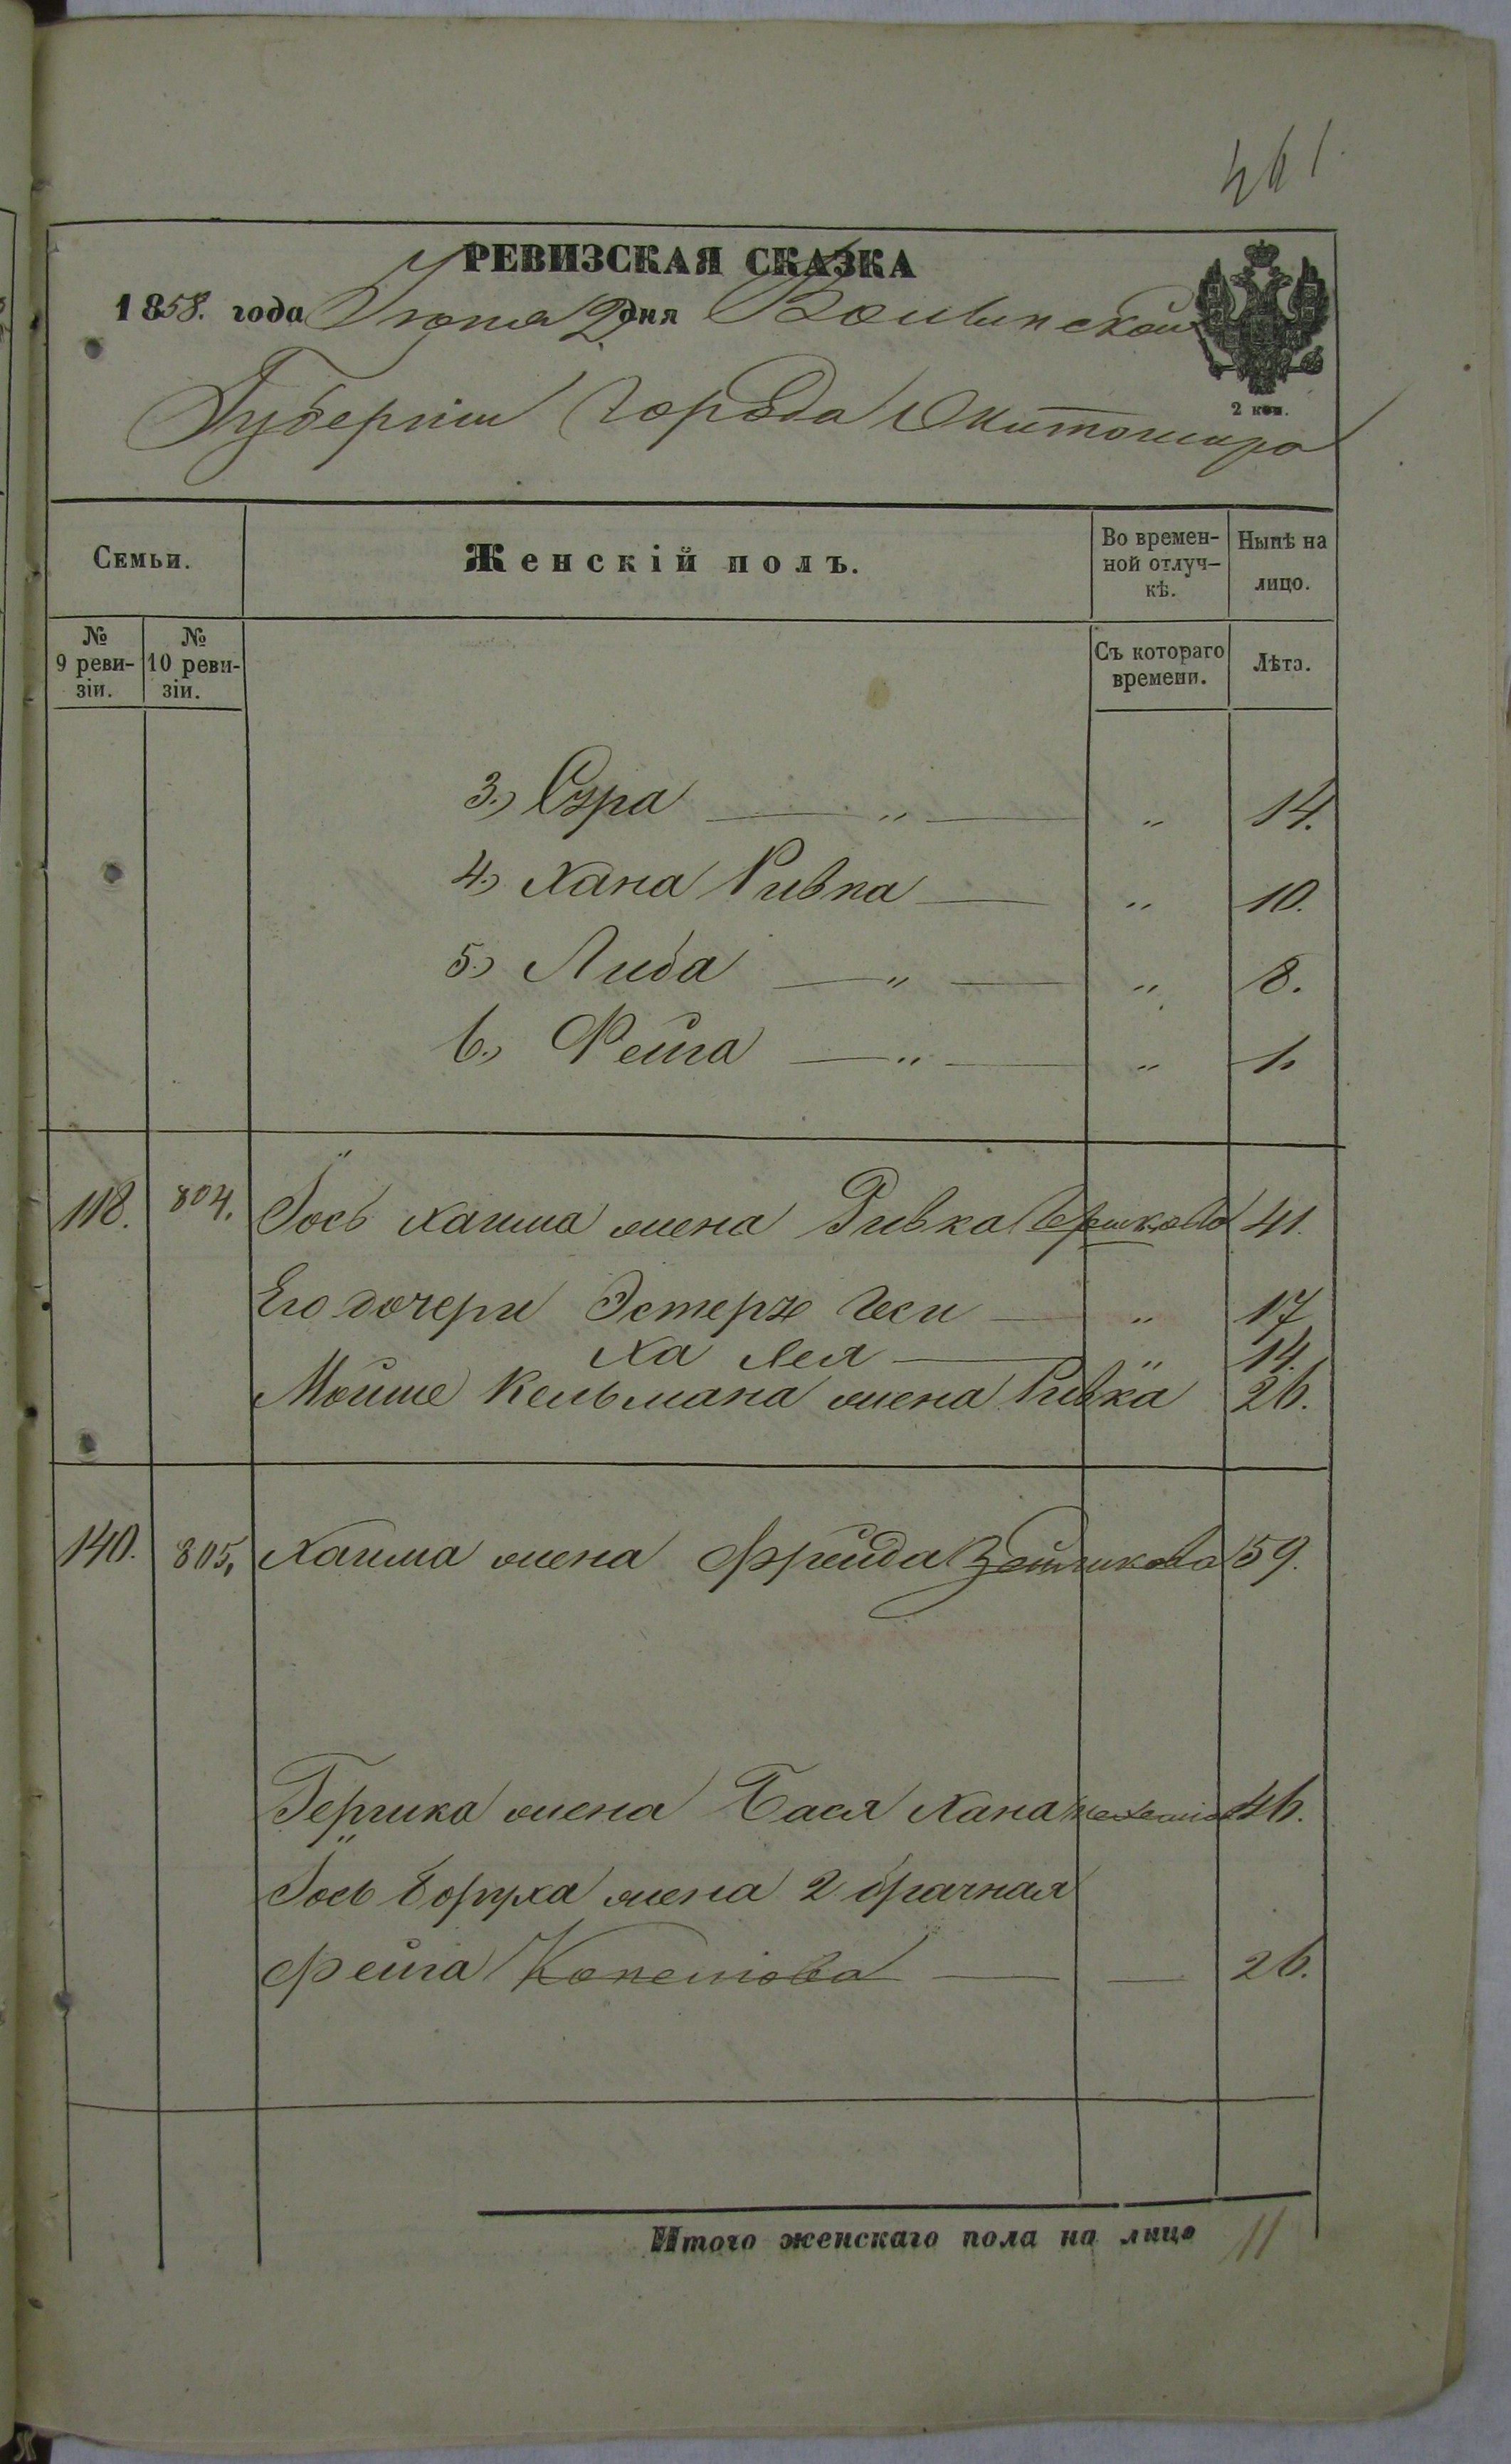 461
РЕВИЗСКАЯ СКАЗКА
1858. года Июня 2 дня Волынской
2 коп.
Губерніи Города Житомира
Семьи.
Женскій полъ.
Во времен-
ной отлуч-
кѣ.
Нынѣ на
лицо.
№
9 реви-
зіи.
№
10 реви-
зіи.
Съ котораго
времени.
Лѣта.
3.) Сура — " — " 14.
4.) Хана Ривка — " 10.
5.) Либа — " — " 8.
6.) Фейга — " — " 1.
118. 804. Іось Хаима жена Ривка Ершкова 41.
Его дочери Эстеръ Геси — " 17
Ха Лея — " 14.
Мойше Кельмана жена Ривка 26.
140. 805. Хаима жена Фрейда 59.
Гершка жена Бася Хана 46.
Іось Боруха жена 2 брачная
Фейга — — 26.
Итого женскаго пола на лицо 11